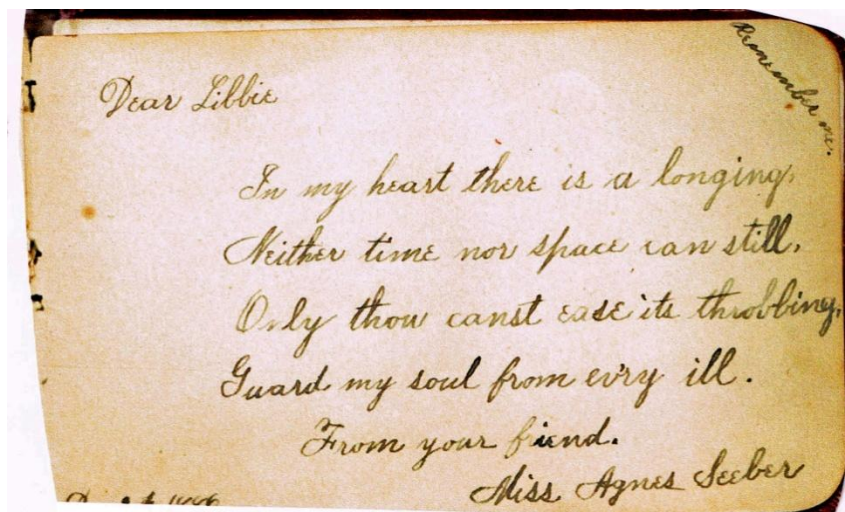 Remember me.
Dear Libbie
In my heart there is a longing,
Neither time nor space can still,
Only thou canst ease its throbbing,
Guard my soul from ev'ry ill.
From your friend.
Miss Agnes Seeber